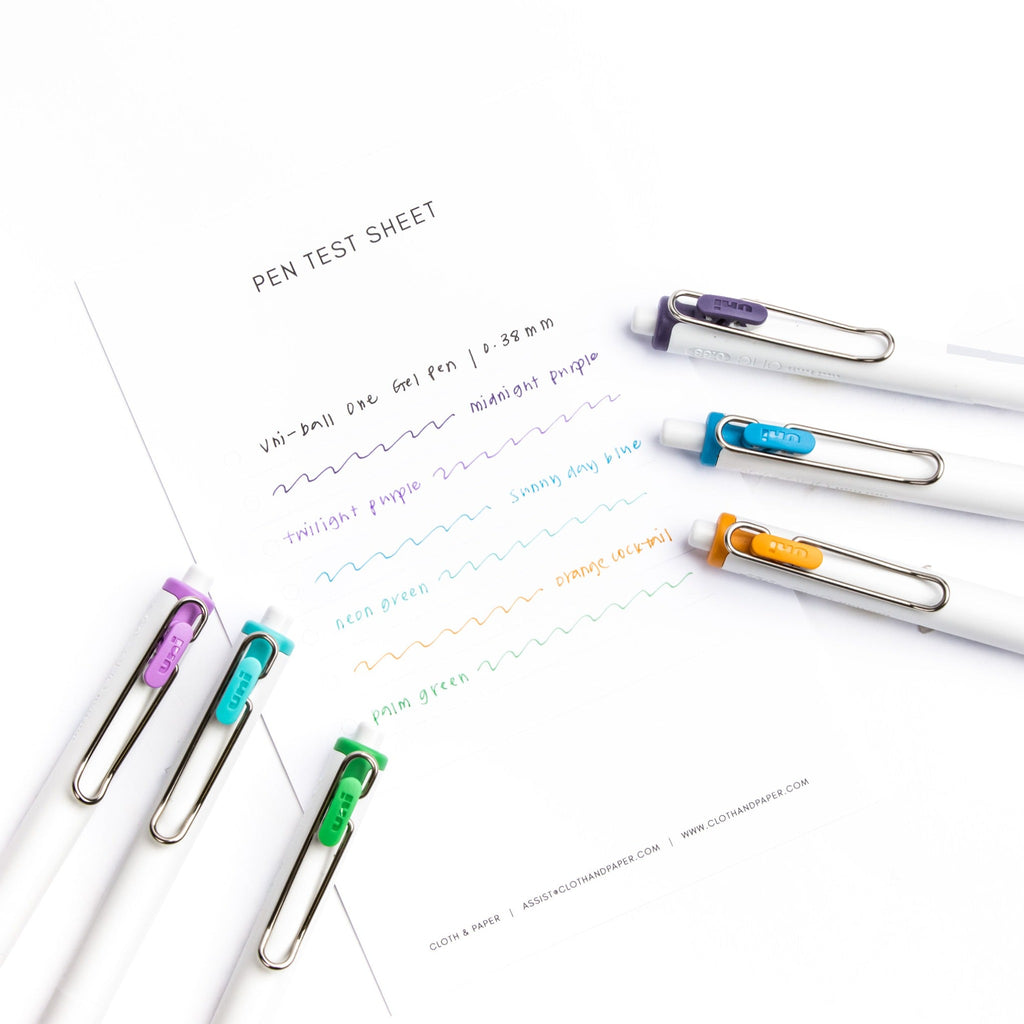 PEN TEST SHEET
Uni-ball One Gel Pen | 0.38mm
midnight purple
twilight purple
sunny day blue
neon green
orange cocktail
palm green
CLOTH & PAPER | ASSIST@CLOTHANDPAPER.COM | WWW.CLOTHANDPAPER.COM
uni
uni
uni
uni
uni
uni